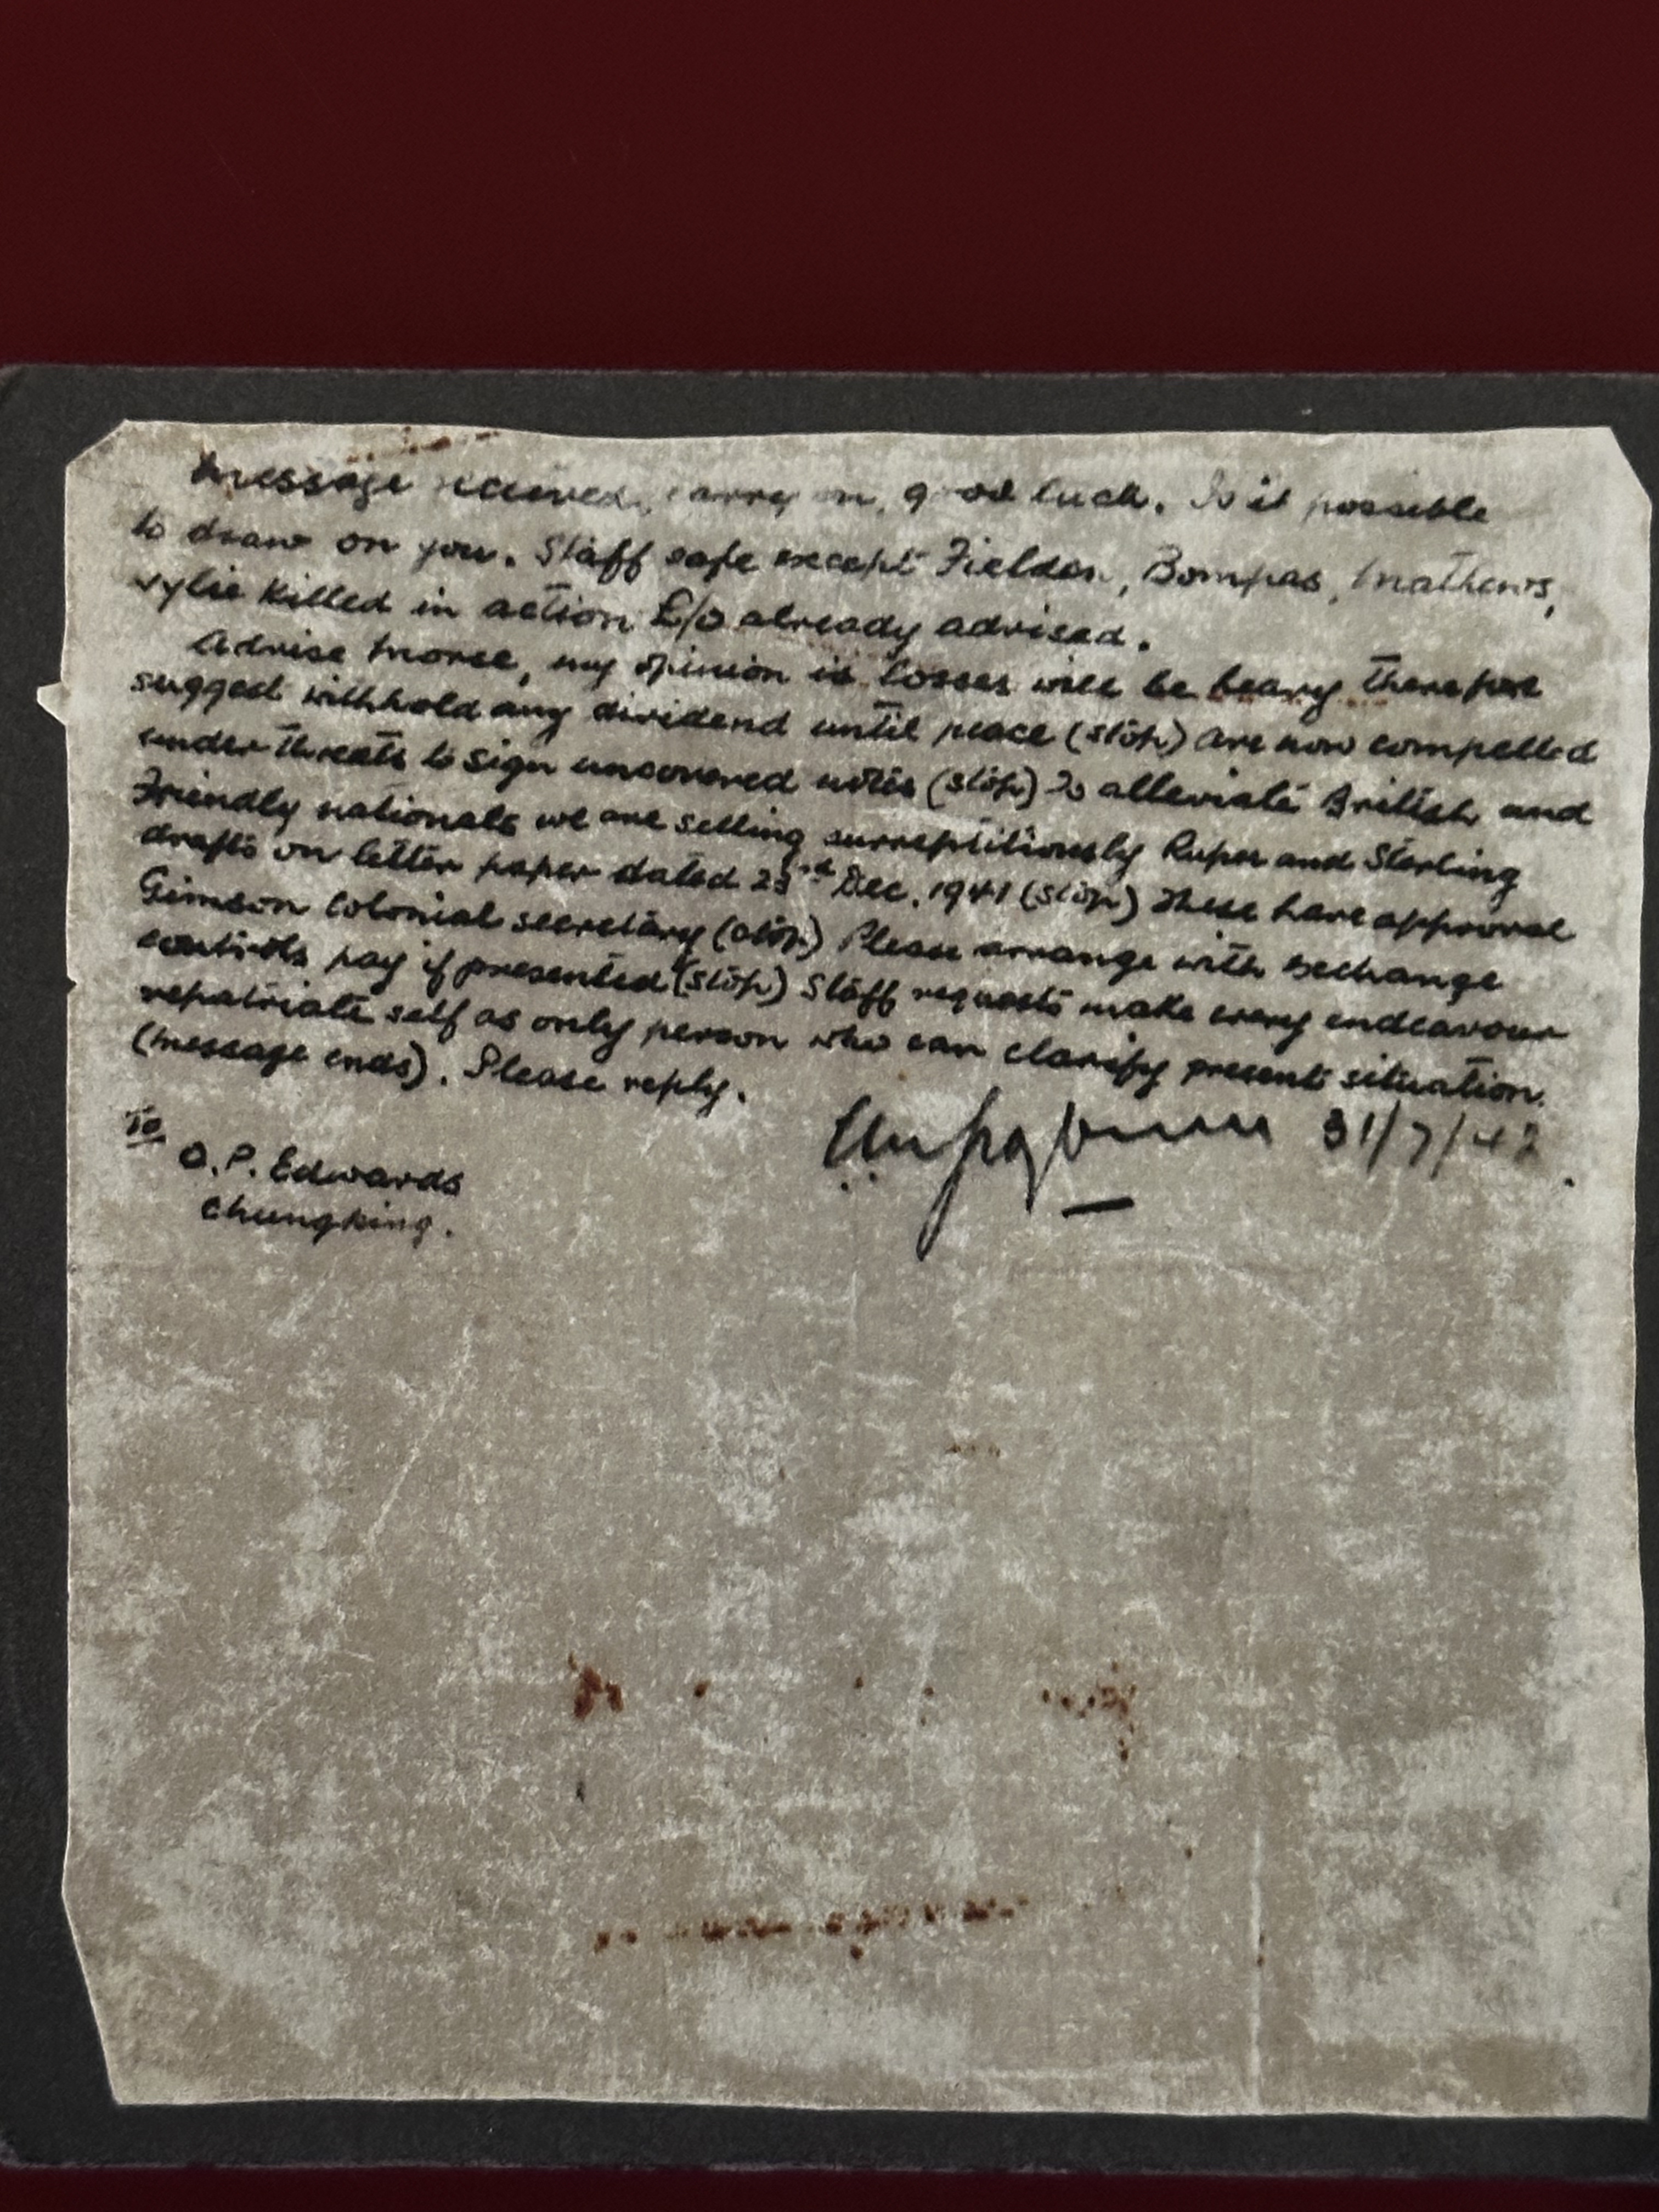 Message received, carry on, good luck. Is it possible
to draw on you. Staff safe except Fielden, Bompas, Mathews,
Wylie killed in action E/O already advised.
Advise Morse, my opinion is losses will be heavy therefore
suggest withhold any dividend until peace (stop) are now compelled
under threats to sign uncovered notes (stop) To alleviate British and
Friendly nationals we are selling surreptitiously Rupee and Sterling
drafts on letter paper dated 23rd Dec. 1941 (stop) These have approval
Gimson Colonial secretary (stop) Please arrange with exchange
controls pay if presented (stop) Staff requests make every endeavour
repatriate self as only person who can clarify present situation.
(message ends). Please reply.
31/7/42
To
O.P. Edwards
Chungking.